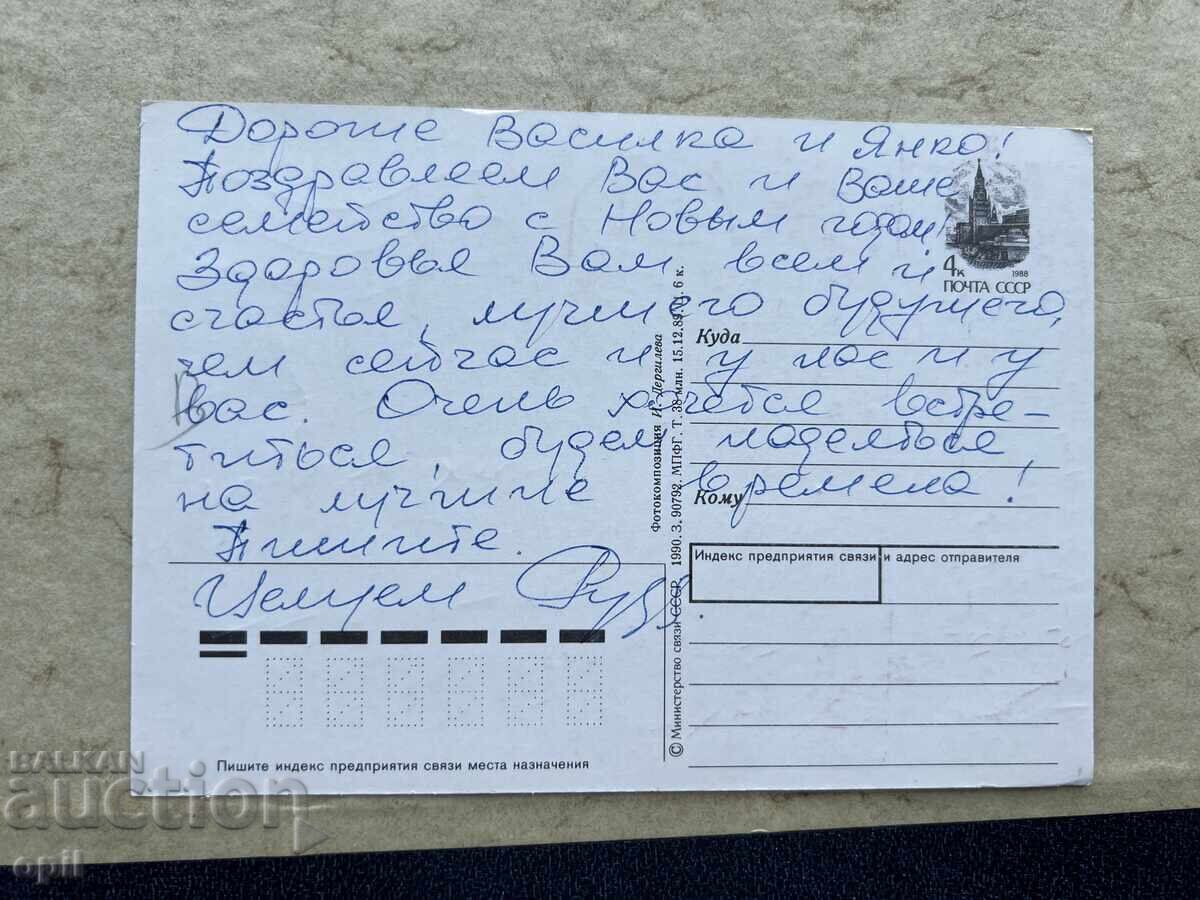 Дорогие Василка и Янко!
Поздравляем Вас и Ваше
семейство с Новым годом!
Здоровья Вам всем и
счастья, лучшего будущего,
чем сейчас и у нас и у
Вас. Очень хочется встре-
титься, будем надеяться
на лучшие времена!
Пишите.
Целуем
4к 1988
ПОЧТА СССР
Куда
Кому
Индекс предприятия связи и адрес отправителя
Фотокомпозиция И. Дергилева
© Министерство связи СССР. 1990. З. 90792. МПФГ. Т. 38 млн. 15.12.89. Ц. 6 к.
Пишите индекс предприятия связи места назначения
BALKAN
auction
opil